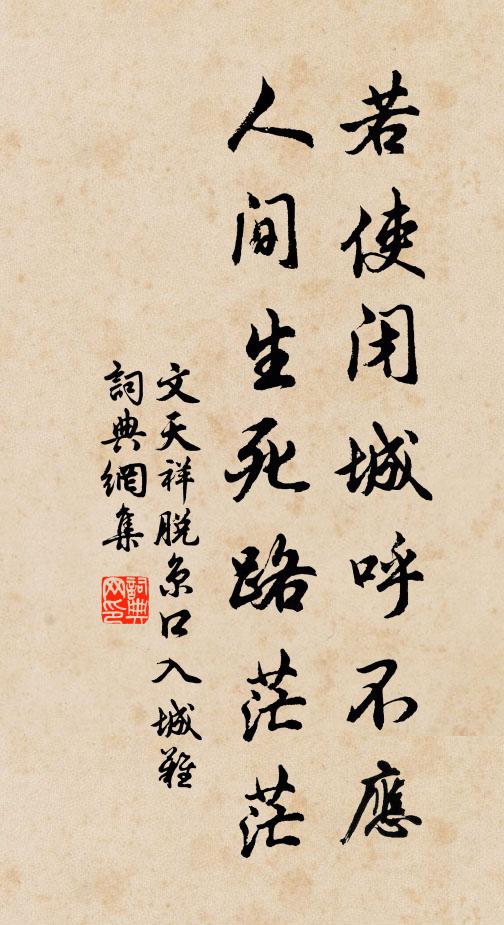 若使闭城呼不應
人间生死路茫茫
文天祥脱京口入城難
詞典網集
詞典
网印